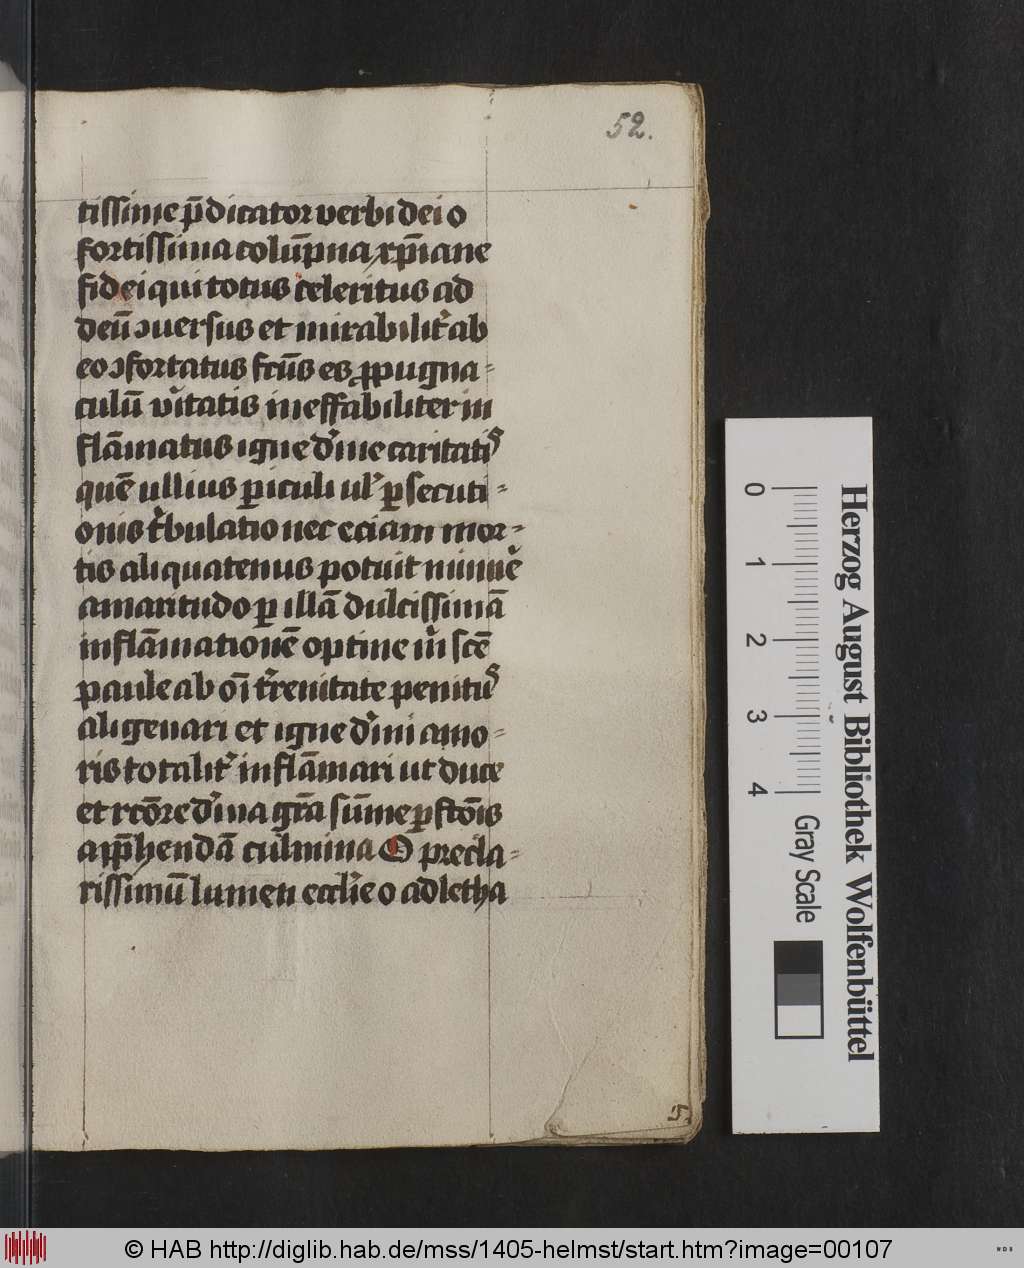 52.
tissime p̄dicator verbi dei o
fortissima colūpna xp̄iane
fidei qui totus celeritus ad
deū ꝯuersus et mirabilit᷑ ab
eo ꝯfortatus fc̄us es ꝓpugna-
culū v᷑itatis ineffabiliter in
flāmatus igne d᷑ine caritatis
quē ullius ꝑiculi ul᷑ ꝑsecuti-
onis t᷑bulatio nec eciam mor-
tis aliquatenus potuit minue᷑
amaritudo ꝑ illā dulcissimā
inflāmationē optine m᷑ scē
paule ab oī t᷑renitate penitus
aligenari et igne d᷑ini amo-
ris totalit᷑ inflāmari ut duce
et rcōre d᷑ina gr̄a sūme ꝑfctōis
app̄hendā culmina O precla-
rissimū lumen eccl᷑ie o adletha
5.
0
1
2
3
4
Gray Scale
Herzog August Bibliothek Wolfenbüttel
© HAB http://diglib.hab.de/mss/1405-helmst/start.htm?image=00107